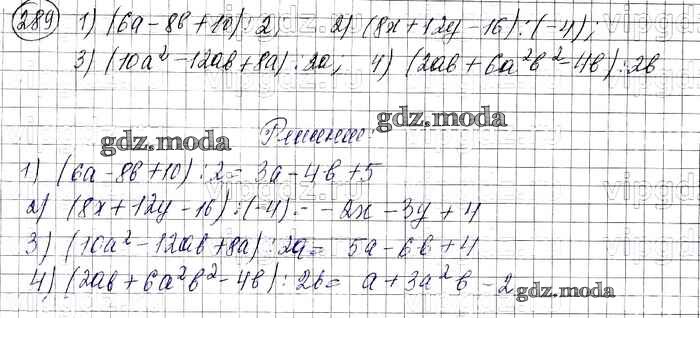 289 1) (6a-8b+10):2, 2) (8x+12y-16):(-4);
3) (10a²-12ab+8a):2a, 4) (2ab+6a²b²-4b):2b
gdz.moda Решение: gdz.moda
1) (6a-8b+10):2=3a-4b+5
2) (8x+12y-16):(-4)=-2x-3y+4
3) (10a²-12ab+8a):2a=5a-6b+4
4) (2ab+6a²b²-4b):2b=a+3a²b-2
gdz.moda